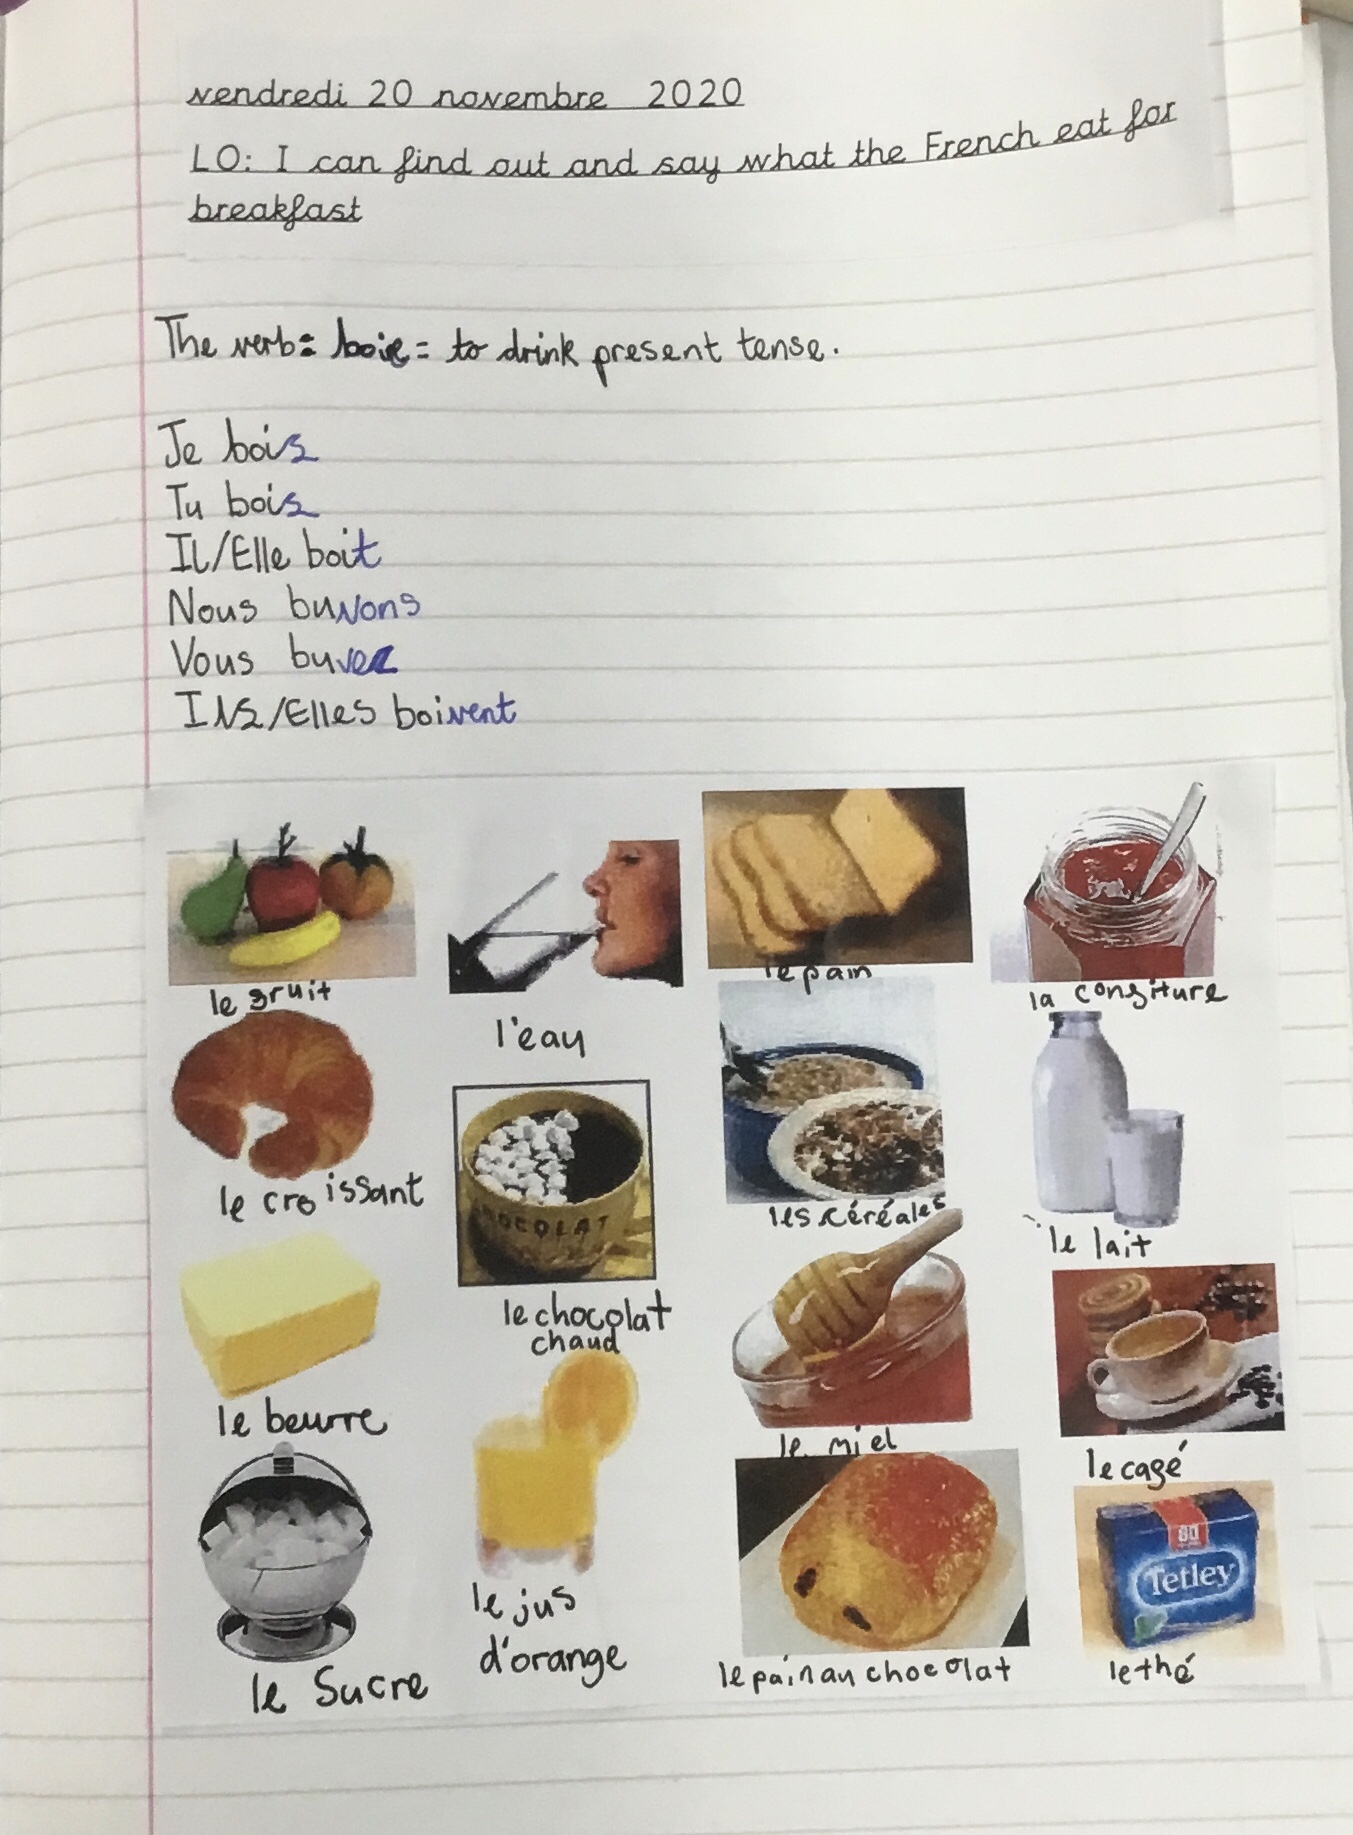 vendredi 20 novembre 2020
LO: I can find out and say what the French eat for
breakfast
The verb: boie = to drink present tense.
Je bois
Tu bois
Il/Elle boit
Nous buvons
Vous buvez
Ils/Elles boivent
le fruit
l'eau
le pain
la confiture
le croissant
CHOCOLAT
le chocolat
chaud
les céréales
le lait
le beurre
le jus
d'orange
le miel
le café
le Sucre
le pain au chocolat
80
Tetley
le thé